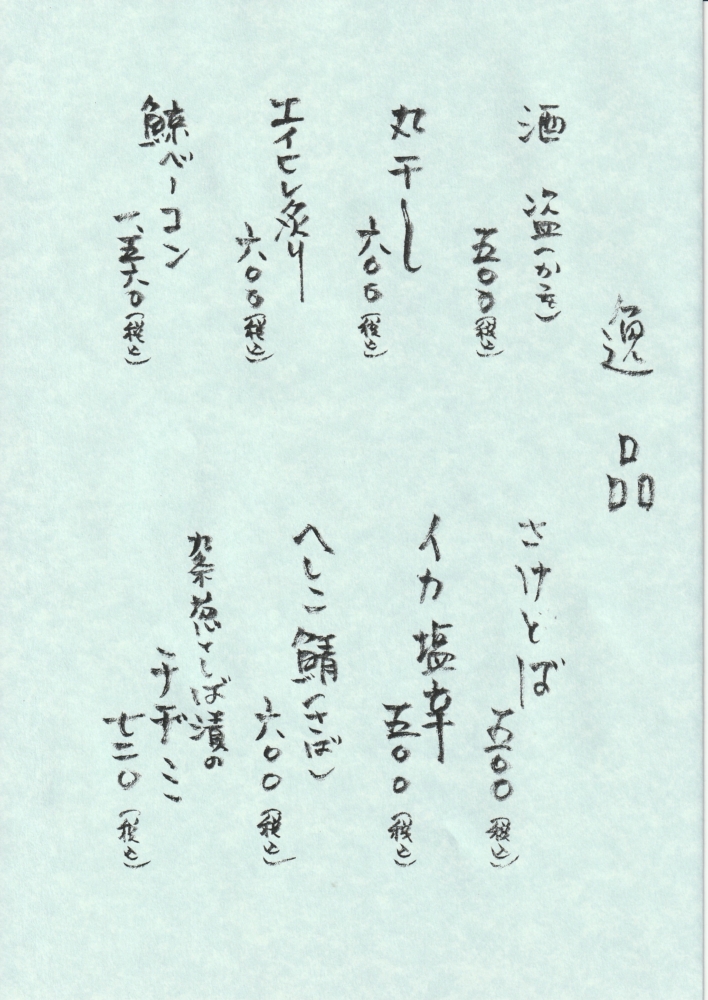 逸品
酒盗(かつを)
五〇〇(税込)
丸干し
六〇〇(税込)
エイヒレ炙り
六〇〇(税込)
鯨ベーコン
一、五六〇(税込)
さけとば
五〇〇(税込)
イカ塩辛
五〇〇(税込)
へしこ鯖(さば)
六〇〇(税込)
九条葱としば漬の
チヂミ
七二〇(税込)